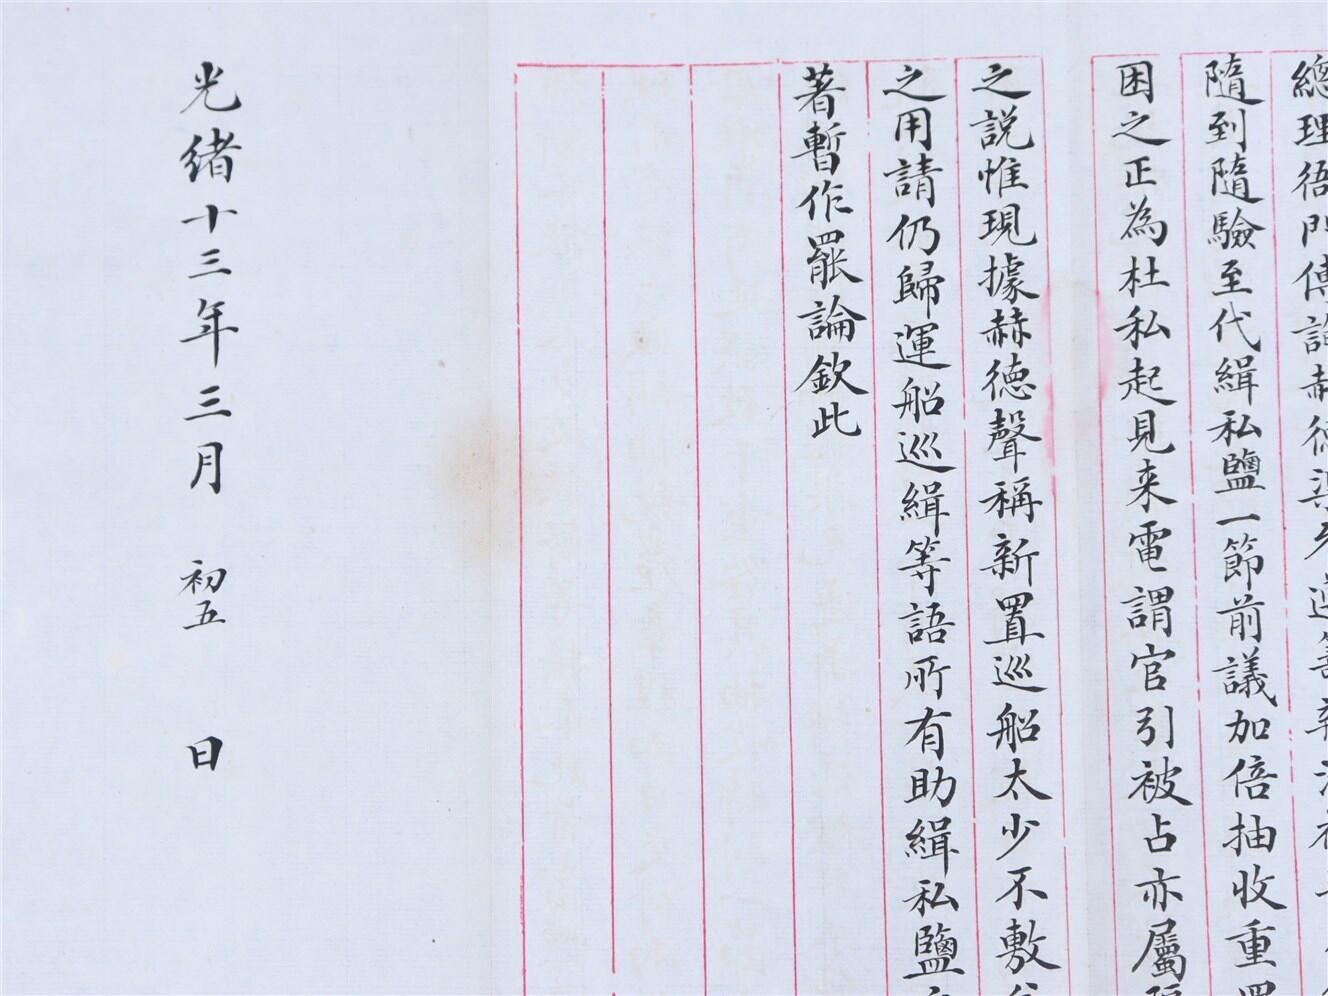 總理衙門傳諭赫德
隨到隨驗至代緝私鹽一節前議加倍抽收重罰
困之正為杜私起見来電謂官引被占亦屬
之説惟現據赫德聲稱新置巡船太少不敷分
之用請仍歸運船巡緝等語所有助緝私鹽
著暫作罷論欽此
光緒十三年三月初五日